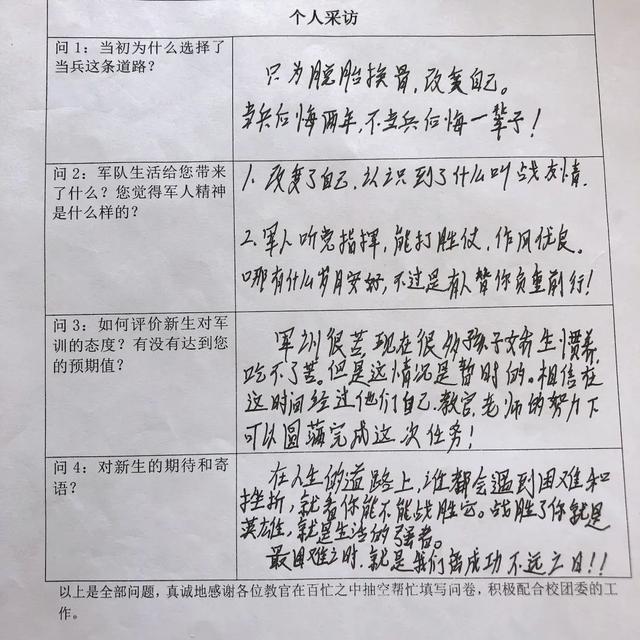 个人采访
问1：当初为什么选择了
当兵这条道路？
只为脱胎换骨，改变自己。
当兵后悔两年，不当兵后悔一辈子！
问2：军队生活给您带来
了什么？您觉得军人精神
是什么样的？
1. 改变了自己，认识到了什么叫战友情.
2.军人听党指挥，能打胜仗，作风优良。
哪有什么岁月安好，不过是有人替你负重前行！
问3：如何评价新生对军
训的态度？有没有达到您
的预期值？
军训很苦，现在很多孩子娇生惯养，
吃不了苦。但是这情况是暂时的。相信在
这时间经过他们自己.教官.老师的努力下
可以圆满完成这次任务！
问4：对新生的期待和寄
语？
在人生的道路上，谁都会遇到困难和
挫折，就看你能不能战胜它。战胜了你就是
英雄，就是生活的强者。
最困难之时，就是我们离成功不远之日！！
以上是全部问题，真诚地感谢各位教官在百忙之中抽空帮忙填写问卷，积极配合校团委的工
作。